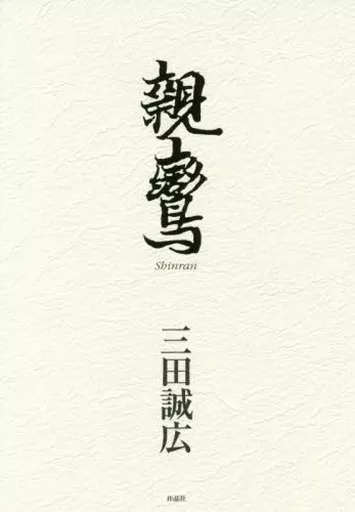 親鸞
Shinran
三田誠広
作品社